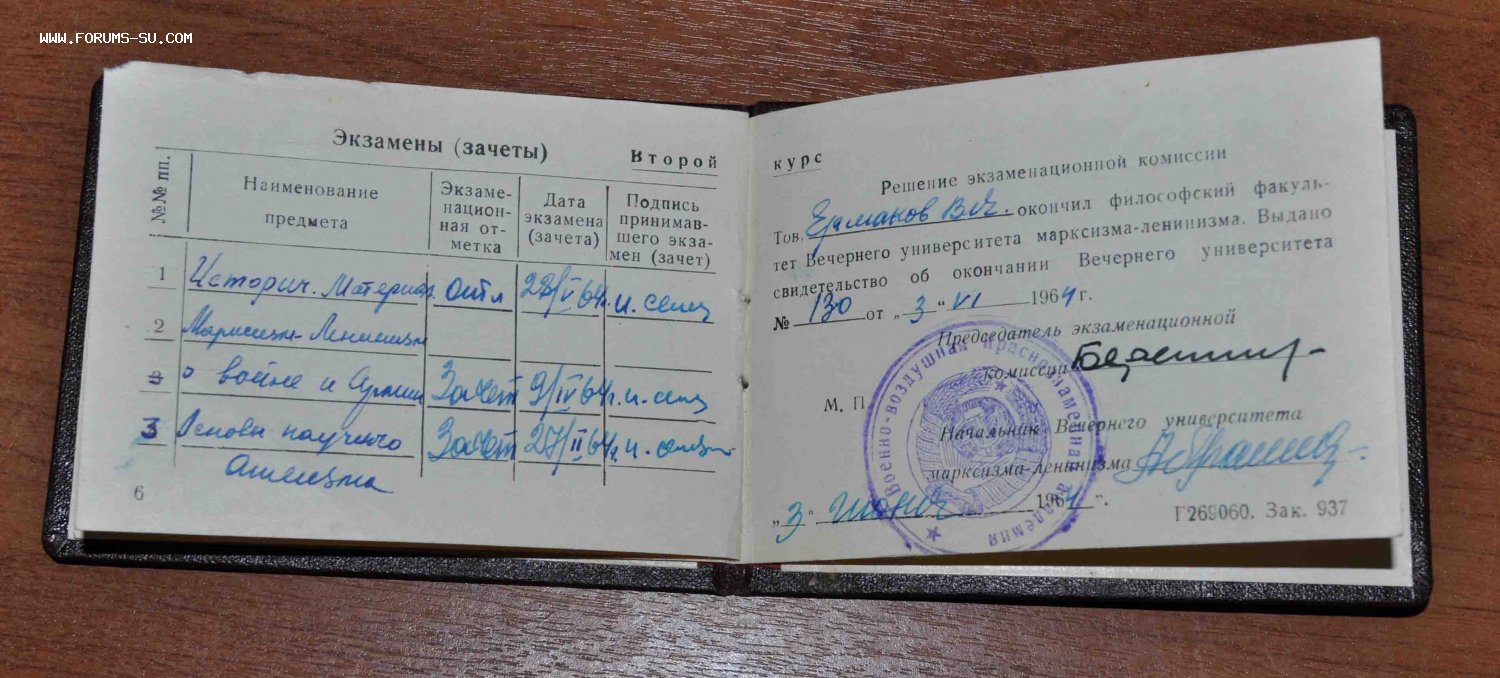 WWW.FORUMS-SU.COM
Экзамены (зачеты)
Второй
№№ пп.
Наименование предмета
Экзаме-
национ-
ная от-
метка
Дата
экзамена
(зачета)
Подпись
принимав-
шего экза-
мен (зачет)
1 Историч. Материал. отл 28/V 64г.
2 Марксизм-Ленинизм
о войне и Армии Зачет 9/IV 64г.
3 Основы научного Зачет 27/II 64г.
атеизма
6
курс
Решение экзаменационной комиссии
Тов. Ерманов В. окончил философский факуль-
тет Вечернего университета марксизма-ленинизма. Выдано
свидетельство об окончании Вечернего университета
№ 130 от „3“ VI 1964 г.
Председатель экзаменационной
комиссии
М. П.
Начальник Вечернего университета
марксизма-ленинизма
„3“ июня 1964 г.
Г269060. Зак. 937
Военно-воздушная Краснознаменная академия